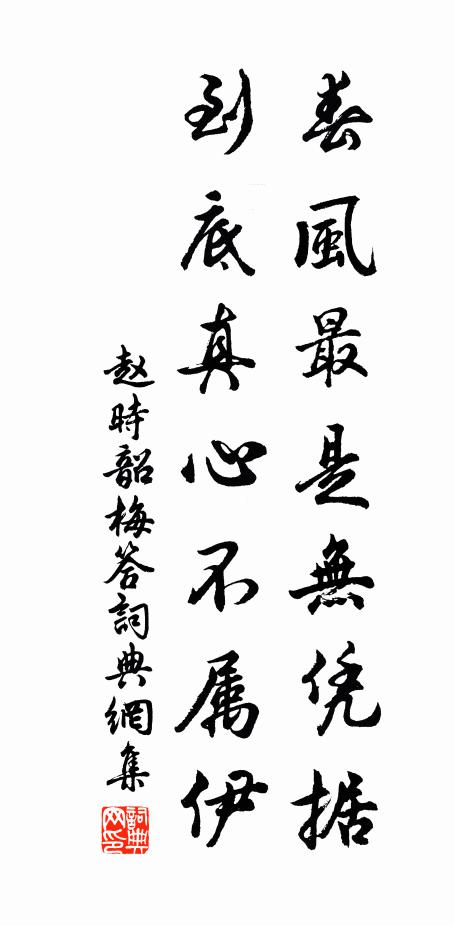 春風最是無凭据
到底真心不属伊
赵時韶梅答詞典網集
詞典網印